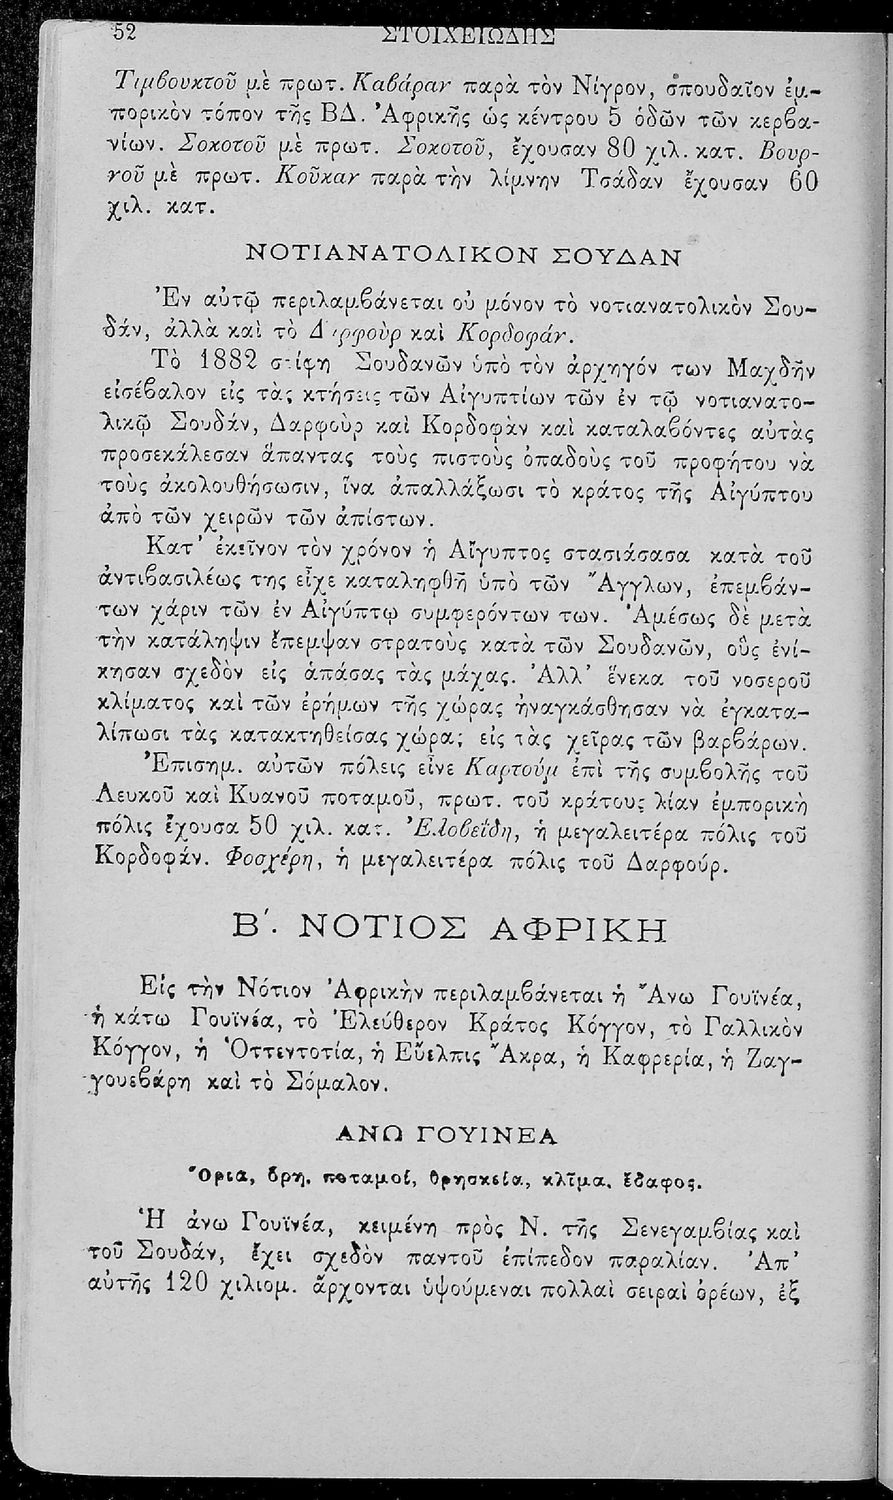 52 ΣΤΟΙΧΕΙΩΔΗΣ
Τιμβουκτοῦ μὲ πρωτ. Καβάραν παρὰ τὸν Νίγρον, σπουδαῖον ἐμ-
πορικὸν τόπον τῆς ΒΔ. Ἀφρικῆς ὡς κέντρου 5 ὁδῶν τῶν κερβα-
νίων. Σοκοτοῦ μὲ πρωτ. Σοκοτοῦ, ἔχουσαν 80 χιλ. κατ. Βουρ-
νοῦ μὲ πρωτ. Κοῦκαν παρὰ τὴν λίμνην Τσάδαν ἔχουσαν 60
χιλ. κατ.
ΝΟΤΙΑΝΑΤΟΛΙΚΟΝ ΣΟΥΔΑΝ
Ἐν αὐτῷ περιλαμβάνεται οὐ μόνον τὸ νοτιανατολικὸν Σου-
δάν, ἀλλὰ καὶ τὸ Δαρφοὺρ καὶ Κορδοφάν.
Τὸ 1882 στίφη Σουδανῶν ὑπὸ τὸν ἀρχηγόν των Μαχδῆν
εἰσέβαλον εἰς τὰς κτήσεις τῶν Αἰγυπτίων τῶν ἐν τῷ νοτιανατο-
λικῷ Σουδάν, Δαρφοὺρ καὶ Κορδοφὰν καὶ καταλαβόντες αὐτὰς
προσεκάλεσαν ἅπαντας τοὺς πιστοὺς ὀπαδοὺς τοῦ προφήτου νὰ
τοὺς ἀκολουθήσωσιν, ἵνα ἀπαλλάξωσι τὸ κράτος τῆς Αἰγύπτου
ἀπὸ τῶν χειρῶν τῶν ἀπίστων.
Κατ' ἐκεῖνον τὸν χρόνον ἡ Αἴγυπτος στασιάσασα κατὰ τοῦ
ἀντιβασιλέως της εἶχε καταληφθῆ ὑπὸ τῶν Ἄγγλων, ἐπεμβάν-
των χάριν τῶν ἐν Αἰγύπτῳ συμφερόντων των. Ἀμέσως δὲ μετὰ
τὴν κατάληψιν ἔπεμψαν στρατοὺς κατὰ τῶν Σουδανῶν, οὓς ἐνί-
κησαν σχεδὸν εἰς ἁπάσας τὰς μάχας. Ἀλλ' ἕνεκα τοῦ νοσεροῦ
κλίματος καὶ τῶν ἐρήμων τῆς χώρας ἠναγκάσθησαν νὰ ἐγκατα-
λίπωσι τὰς κατακτηθείσας χώρας εἰς τὰς χεῖρας τῶν βαρβάρων.
Ἐπισημ. αὐτῶν πόλεις εἶνε Καρτούμ ἐπὶ τῆς συμβολῆς τοῦ
Λευκοῦ καὶ Κυανοῦ ποταμοῦ, πρωτ. τοῦ κράτους λίαν ἐμπορικὴ
πόλις ἔχουσα 50 χιλ. κατ. Ἐλοβεΐδη, ἡ μεγαλειτέρα πόλις τοῦ
Κορδοφάν. Φοσχέρη, ἡ μεγαλειτέρα πόλις τοῦ Δαρφούρ.
Β΄. ΝΟΤΙΟΣ ΑΦΡΙΚΗ
Εἰς τὴν Νότιον Ἀφρικὴν περιλαμβάνεται ἡ Ἄνω Γουϊνέα,
ἡ κάτω Γουϊνέα, τὸ Ἐλεύθερον Κράτος Κόγγον, τὸ Γαλλικὸν
Κόγγον, ἡ Ὀττεντοτία, ἡ Εὔελπις Ἄκρα, ἡ Καφρερία, ἡ Ζαγ-
γουεβάρη καὶ τὸ Σόμαλον.
ΑΝΩ ΓΟΥΙΝΕΑ
Ὅρια, ὄρη, ποταμοί, θρησκεία, κλῖμα, ἔδαφος.
Ἡ ἄνω Γουϊνέα, κειμένη πρὸς Ν. τῆς Σενεγαμβίας καὶ
τοῦ Σουδάν, ἔχει σχεδὸν παντοῦ ἐπίπεδον παραλίαν. Ἀπ'
αὐτῆς 120 χιλιομ. ἄρχονται ὑψούμεναι πολλαὶ σειραὶ ὀρέων, ἐξ